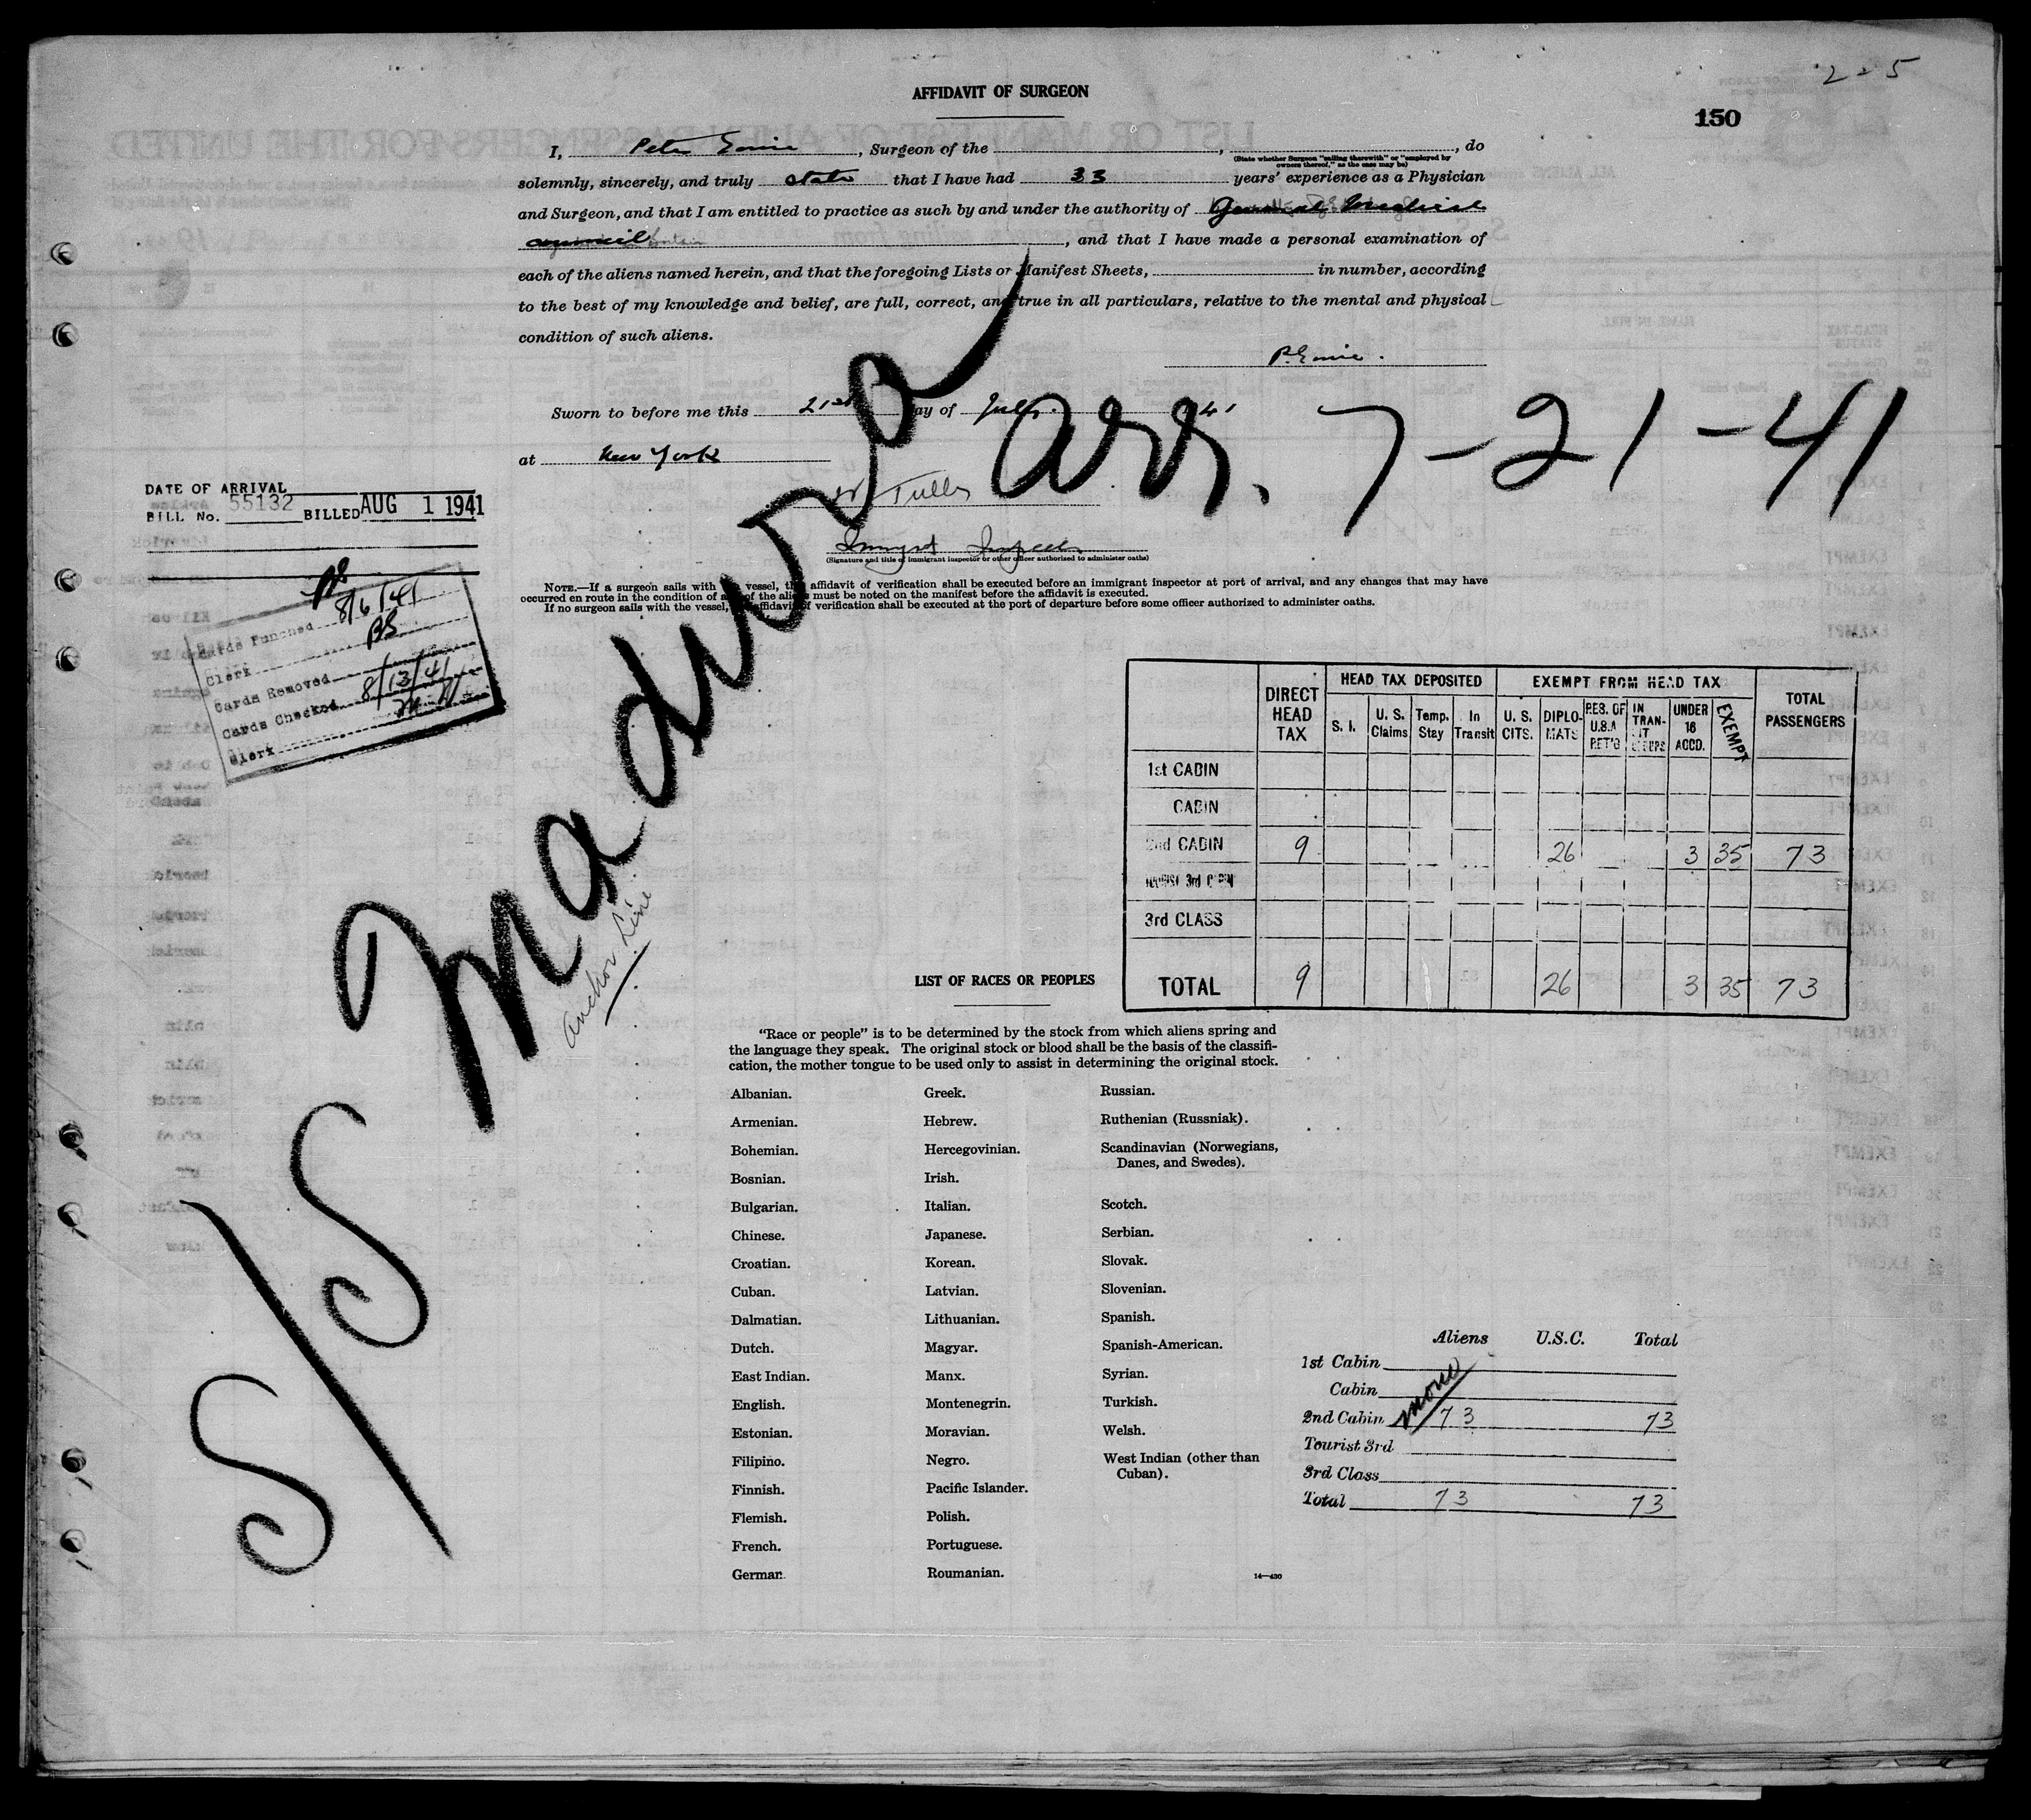 2-5
150
AFFIDAVIT OF SURGEON
I, Peter, Surgeon of the , , do
(State whether Surgeon "sailing therewith" or "employed by owners thereof," as the case may be)
solemnly, sincerely, and truly state that I have had 33 years' experience as a Physician
and Surgeon, and that I am entitled to practice as such by and under the authority of General Medical
council, and that I have made a personal examination of
each of the aliens named herein, and that the foregoing Lists or Manifest Sheets, in number, according
to the best of my knowledge and belief, are full, correct, and true in all particulars, relative to the mental and physical
condition of such aliens.
Sworn to before me this 21st day of July 41
at New York
arr. 7-21-41
Tulles
Immigrant Inspector
(Signature and title of immigrant inspector or other officer authorized to administer oaths)
DATE OF ARRIVAL
BILL No. 55132 BILLED AUG 1 1941
Cards Punched 8/6/41
Clerk BS
Cards Removed
Cards Checked 8/13/41
Clerk
NOTE.—If a surgeon sails with the vessel, the affidavit of verification shall be executed before an immigrant inspector at port of arrival, and any changes that may have
occurred en route in the condition of any of the aliens must be noted on the manifest before the affidavit is executed.
If no surgeon sails with the vessel, the affidavit of verification shall be executed at the port of departure before some officer authorized to administer oaths.
S/S Madura
Anchor Line
DIRECT HEAD TAX
HEAD TAX DEPOSITED
EXEMPT FROM HEAD TAX
TOTAL PASSENGERS
S. I.
U. S. Claims
Temp. Stay
In Transit
U. S. CITS.
DIPLO-MATS
RES. OF U.S.A RET'G
IN TRAN-SIT
UNDER 16 ACCD.
EXEMPT
1st CABIN
CABIN
2nd CABIN 9 26 3 35 73
TOURIST 3rd CABIN
3rd CLASS
TOTAL 9 26 3 35 73
LIST OF RACES OR PEOPLES
"Race or people" is to be determined by the stock from which aliens spring and
the language they speak. The original stock or blood shall be the basis of the classifi-
cation, the mother tongue to be used only to assist in determining the original stock.
Albanian.
Armenian.
Bohemian.
Bosnian.
Bulgarian.
Chinese.
Croatian.
Cuban.
Dalmatian.
Dutch.
East Indian.
English.
Estonian.
Filipino.
Finnish.
Flemish.
French.
German.
Greek.
Hebrew.
Hercegovinian.
Irish.
Italian.
Japanese.
Korean.
Latvian.
Lithuanian.
Magyar.
Manx.
Montenegrin.
Moravian.
Negro.
Pacific Islander.
Polish.
Portuguese.
Roumanian.
Russian.
Ruthenian (Russniak).
Scandinavian (Norwegians,
Danes, and Swedes).
Scotch.
Serbian.
Slovak.
Slovenian.
Spanish.
Spanish-American.
Syrian.
Turkish.
Welsh.
West Indian (other than
Cuban).
14—430
Aliens U.S.C. Total
1st Cabin
Cabin
2nd Cabin 73 73
Tourist 3rd
3rd Class
Total 73 73